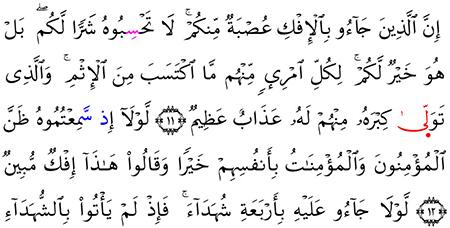 إِنَّ ٱلَّذِينَ جَآءُو بِٱلْإِفْكِ عُصْبَةٌ مِّنكُمْ ۚ لَا تَحْسِبُوهُ شَرًّا لَّكُم ۖ بَلْ
هُوَ خَيْرٌ لَّكُمْ ۚ لِكُلِّ ٱمْرِئٍ مِّنْهُم مَّا ٱكْتَسَبَ مِنَ ٱلْإِثْمِ ۚ وَٱلَّذِى
تَوَلّىٰ كِبْرَهُۥ مِنْهُمْ لَهُۥ عَذَابٌ عَظِيمٌ ﴿١١﴾ لَّوْلَآ إِذ سَّمِعْتُمُوهُ ظَنَّ
ٱلْمُؤْمِنُونَ وَٱلْمُؤْمِنَٰتُ بِأَنفُسِهِمْ خَيْرًا وَقَالُوا۟ هَٰذَآ إِفْكٌ مُّبِينٌ
﴿١٢﴾ لَّوْلَا جَآءُو عَلَيْهِ بِأَرْبَعَةِ شُهَدَآءَ ۚ فَإِذْ لَمْ يَأْتُوا۟ بِٱلشُّهَدَآءِ